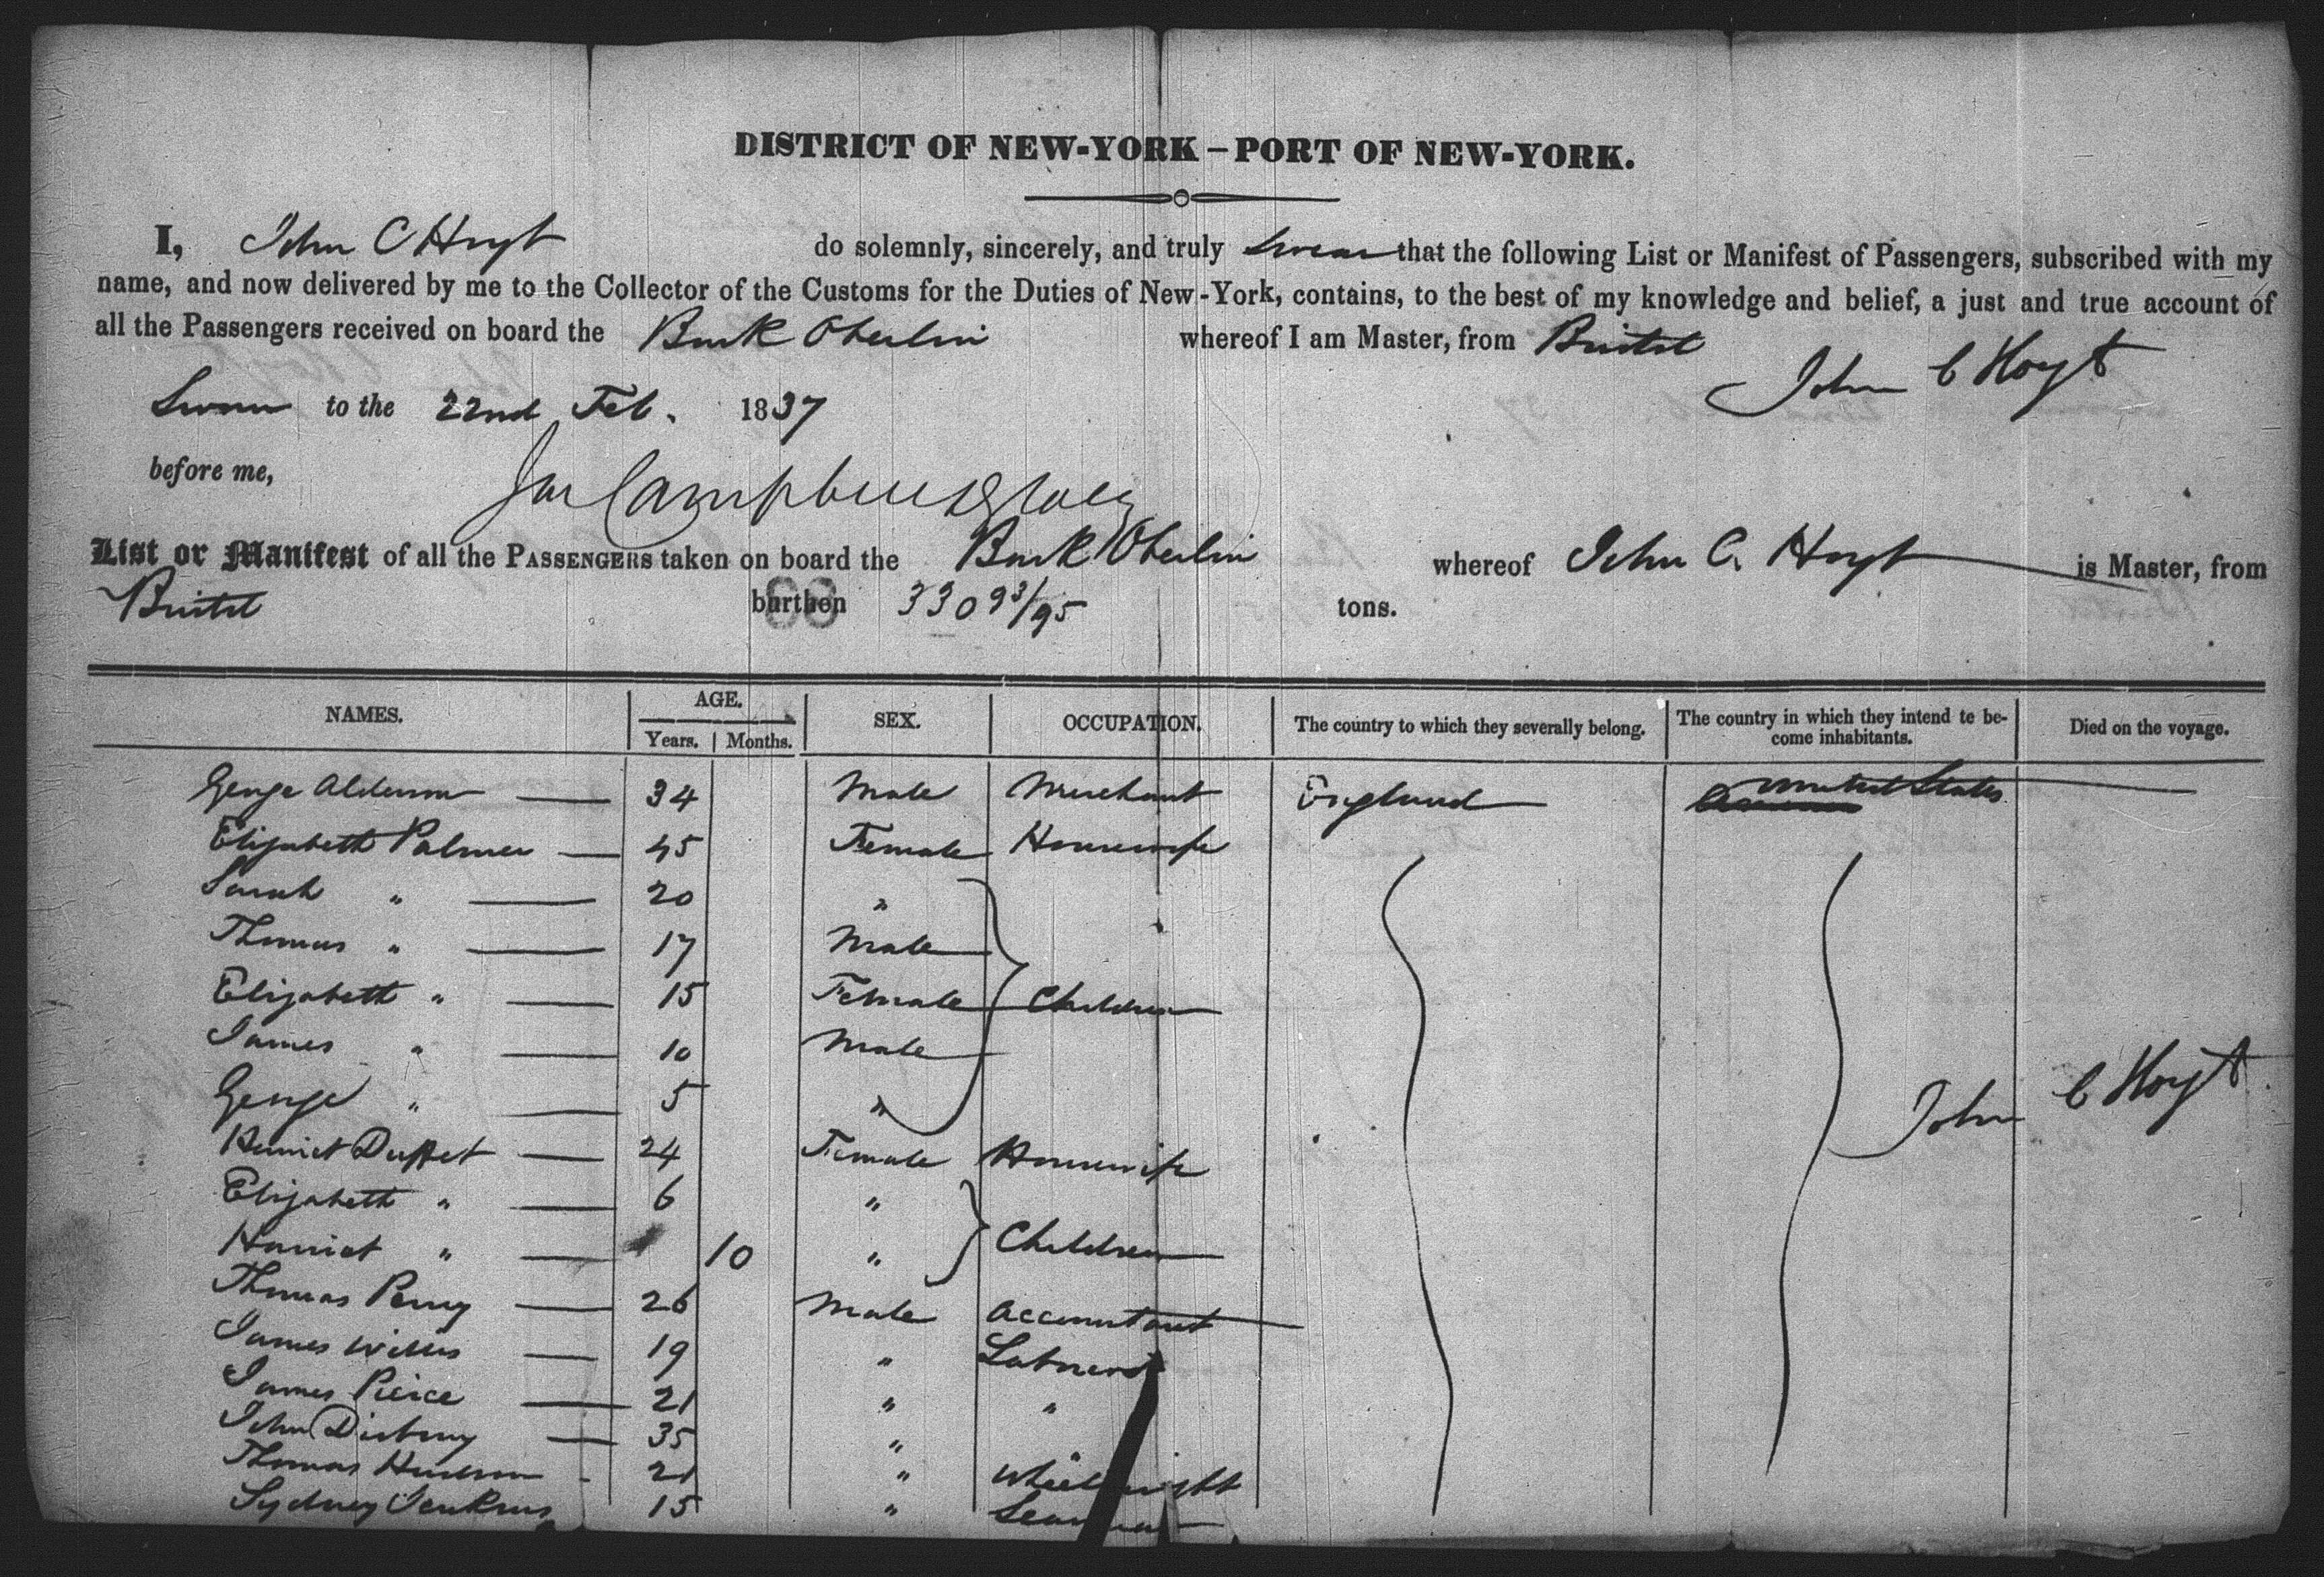 DISTRICT OF NEW-YORK – PORT OF NEW-YORK.
I, John C Hoyt do solemnly, sincerely, and truly swear that the following List or Manifest of Passengers, subscribed with my
name, and now delivered by me to the Collector of the Customs for the Duties of New-York, contains, to the best of my knowledge and belief, a just and true account of
all the Passengers received on board the Bark Oberlin whereof I am Master, from Bristol
John C Hoyt
Sworn to the 22nd Feb. 1837
before me,
List or Manifest of all the PASSENGERS taken on board the Bark Oberlin whereof John C. Hoyt is Master, from
Bristol burthen 330 93/95 tons.
NAMES. AGE. Years. Months. SEX. OCCUPATION. The country to which they severally belong. The country in which they intend te become inhabitants. Died on the voyage.
George Alderson 34 Male Merchant England United States
Elizabeth Palmer 45 Female Housewife
Sarah " 20 "
Thomas " 17 Male
Elizabeth " 15 Female Children
James " 10 Male
George " 5 "
John C Hoyt
Harriet Duffet 24 Female Housewife
Elizabeth " 6 "
Harriet " 10 " Children
Thomas Perry 26 Male Accountant
James Willis 19 " Labourer
James Peirce 21 " "
John 35 " "
Thomas 21 " Wheelwright
Sydney Jenkins 15 "